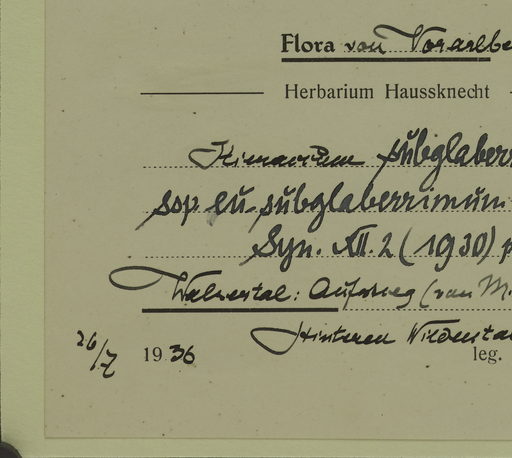 Flora von Vorarlbe
Herbarium Haussknecht
Hieracium subglaberr
ssp. eu-subglaberrimum
Syn. XII. 2 (1930) p
Walsertal: Aufstieg (von M.
Hinteren Wildenta
26/7 1936 leg.